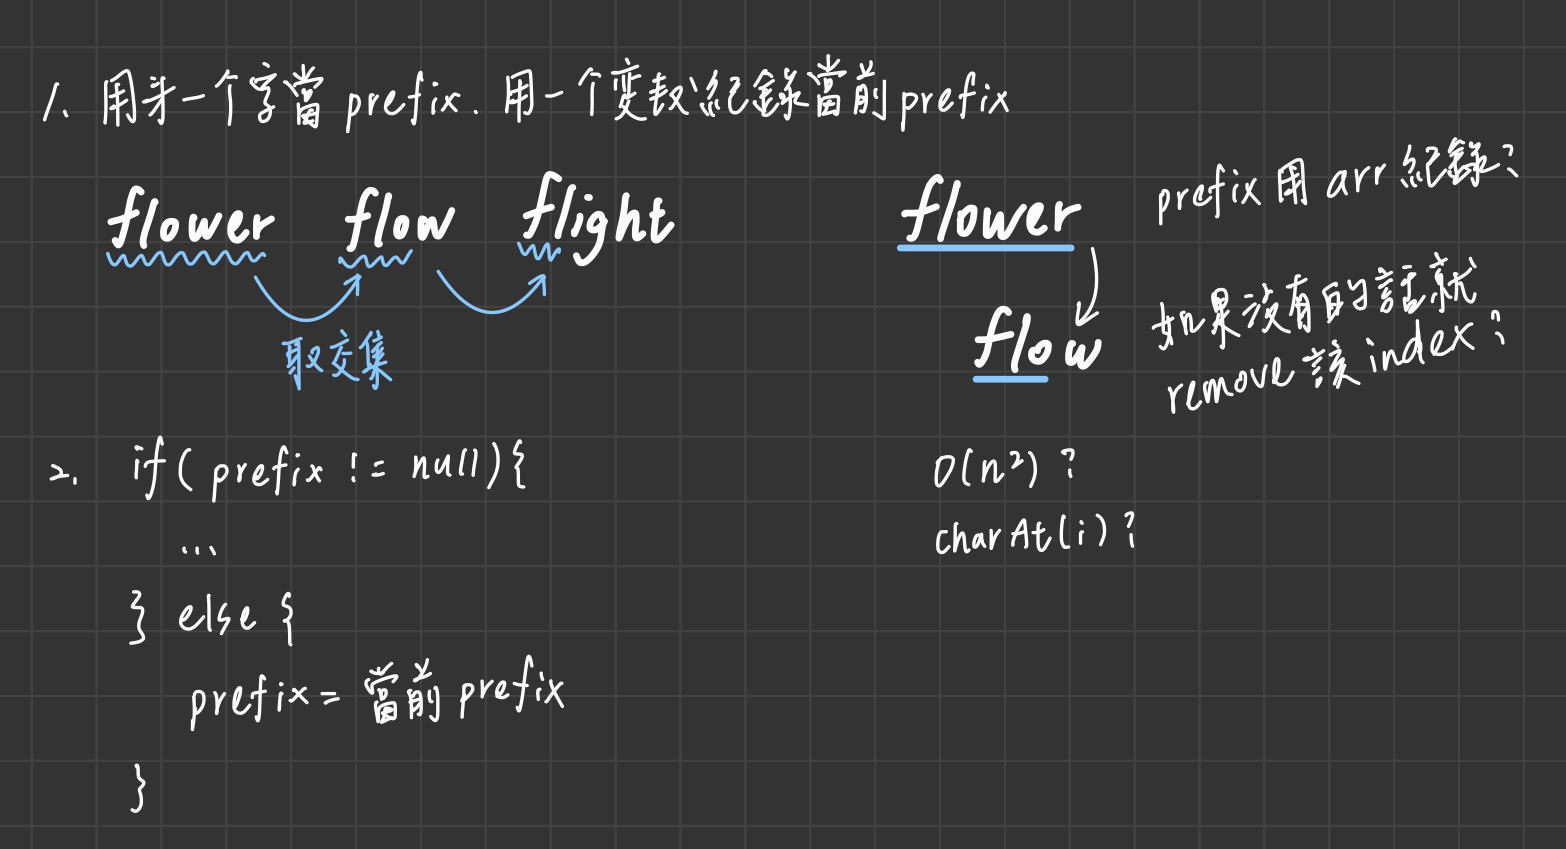 1. 用第一个字當 prefix. 用一个变数紀錄當前 prefix
flower flow flight
取交集
flower
flow
prefix 用 arr 紀錄?
如果沒有的話就
remove 該 index?
2. if( prefix != null){
...
} else {
prefix = 當前 prefix
}
O(n²) ?
charAt(i) ?